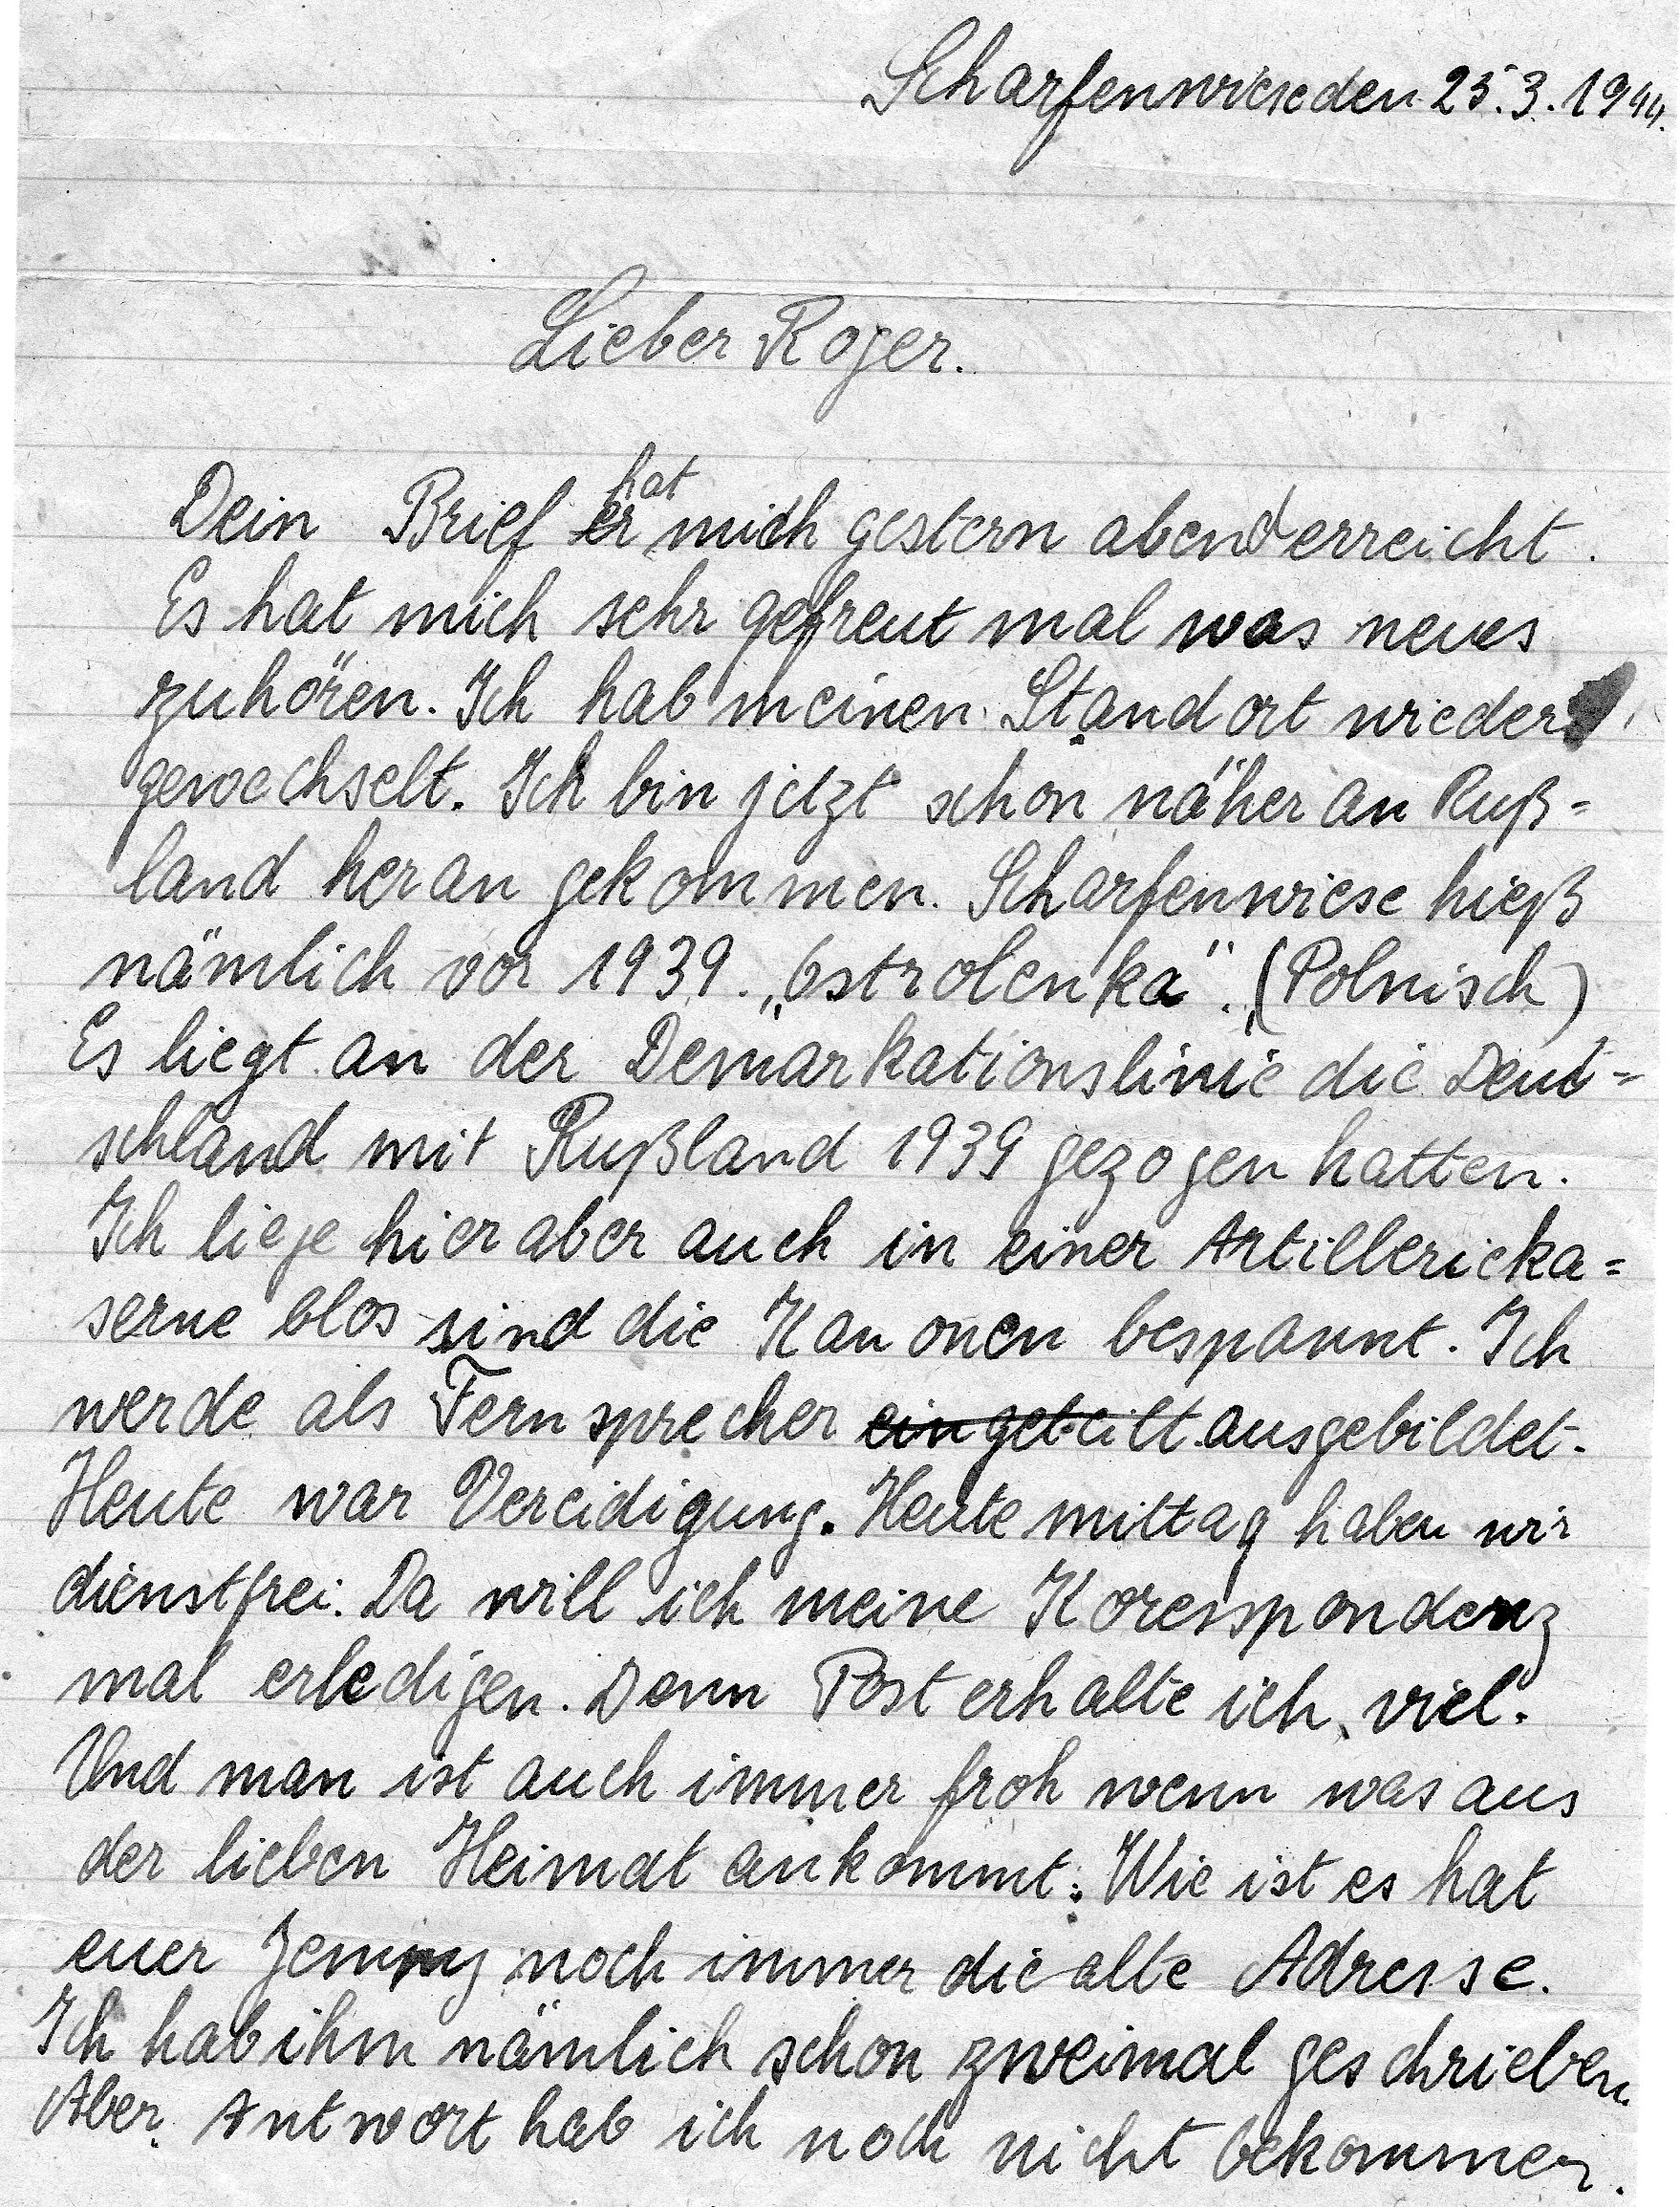 Scharfenwiese den 25.3.1944.
Lieber Roger.
hat
Dein Brief er mich gestern abend erreicht.
Es hat mich sehr gefreut mal was neues
zuhören. Ich hab meinen Standort wieder
gewechselt. Ich bin jetzt schon näher an Ruß=
land heran gekommen. Scharfenwiese hieß
nämlich vor 1939. „Ostrolenka". (Polnisch)
Es liegt an der Demarkationslinie die Deut-
schland mit Rußland 1939 gezogen hatten.
Ich liege hier aber auch in einer Artillerieka=
serne blos sind die Kanonen bespannt. Ich
werde als Fernsprecher eingeteilt ausgebildet.
Heute war Vereidigung. Heute mittag haben wir
dienstfrei. Da will ich meine Korespondenz
mal erledigen. Denn Post erhalte ich viel.
Und man ist auch immer froh wenn was aus
der lieben Heimat ankommt. Wie ist es hat
euer noch immer die alte Adresse.
Ich hab ihm nämlich schon zweimal geschrieben.
Aber Antwort hab ich noch nicht bekommen.